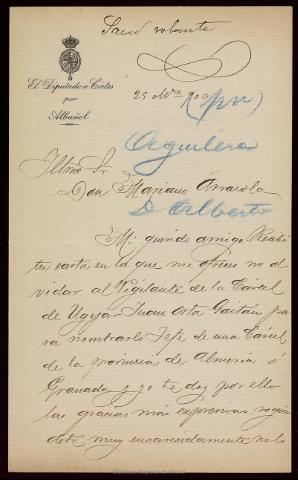 El Diputado a Cortes
por
Albuñol
25 Nbre 900
Aguilera
Iltmo Sr
Don Mariano Arrazola
D Alberto
Mi querido amigo: Recibi
tu carta en la que me ofreces no ol
vidar al Vigilante de la Cárcel
de Ugijar Juan Osta Gaitán pa
ra nombrarlo Jefe de una Cárcel
de la provincia de Almeria ó
Granada y yo te doy por ello
las gracias más expresivas rogán
dote muy encarecidamente no lo